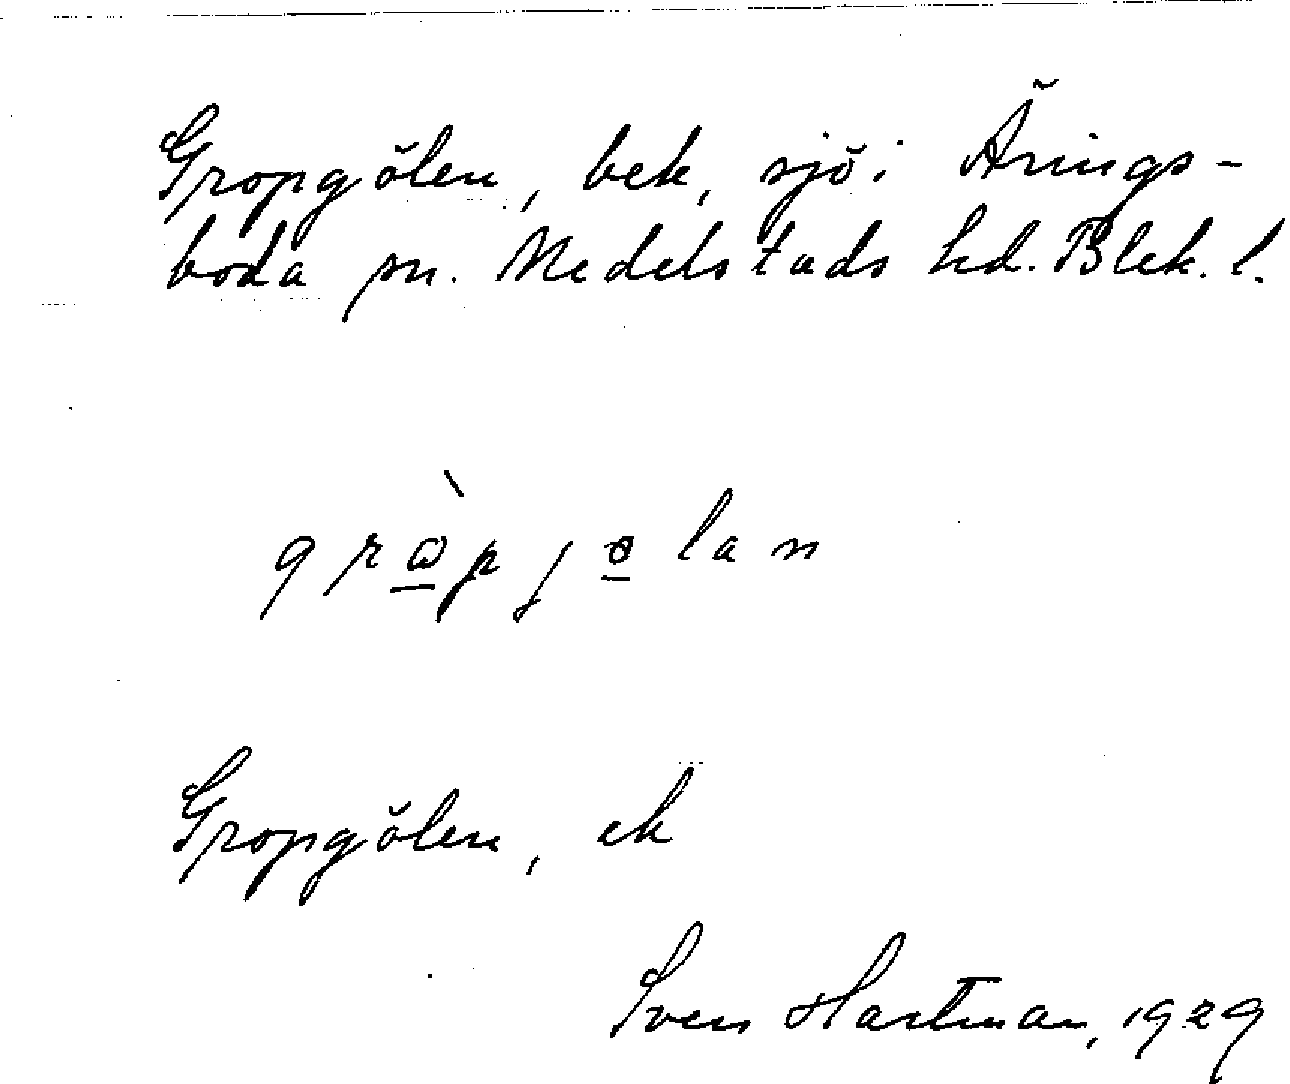 Gropgölen, bek, sjö i Ärings-
boda sn. Medelstads hd. Blek. l.
grὼ̲pjɵ̲lan
Gropgölen, ek
Sven Hartman, 1929